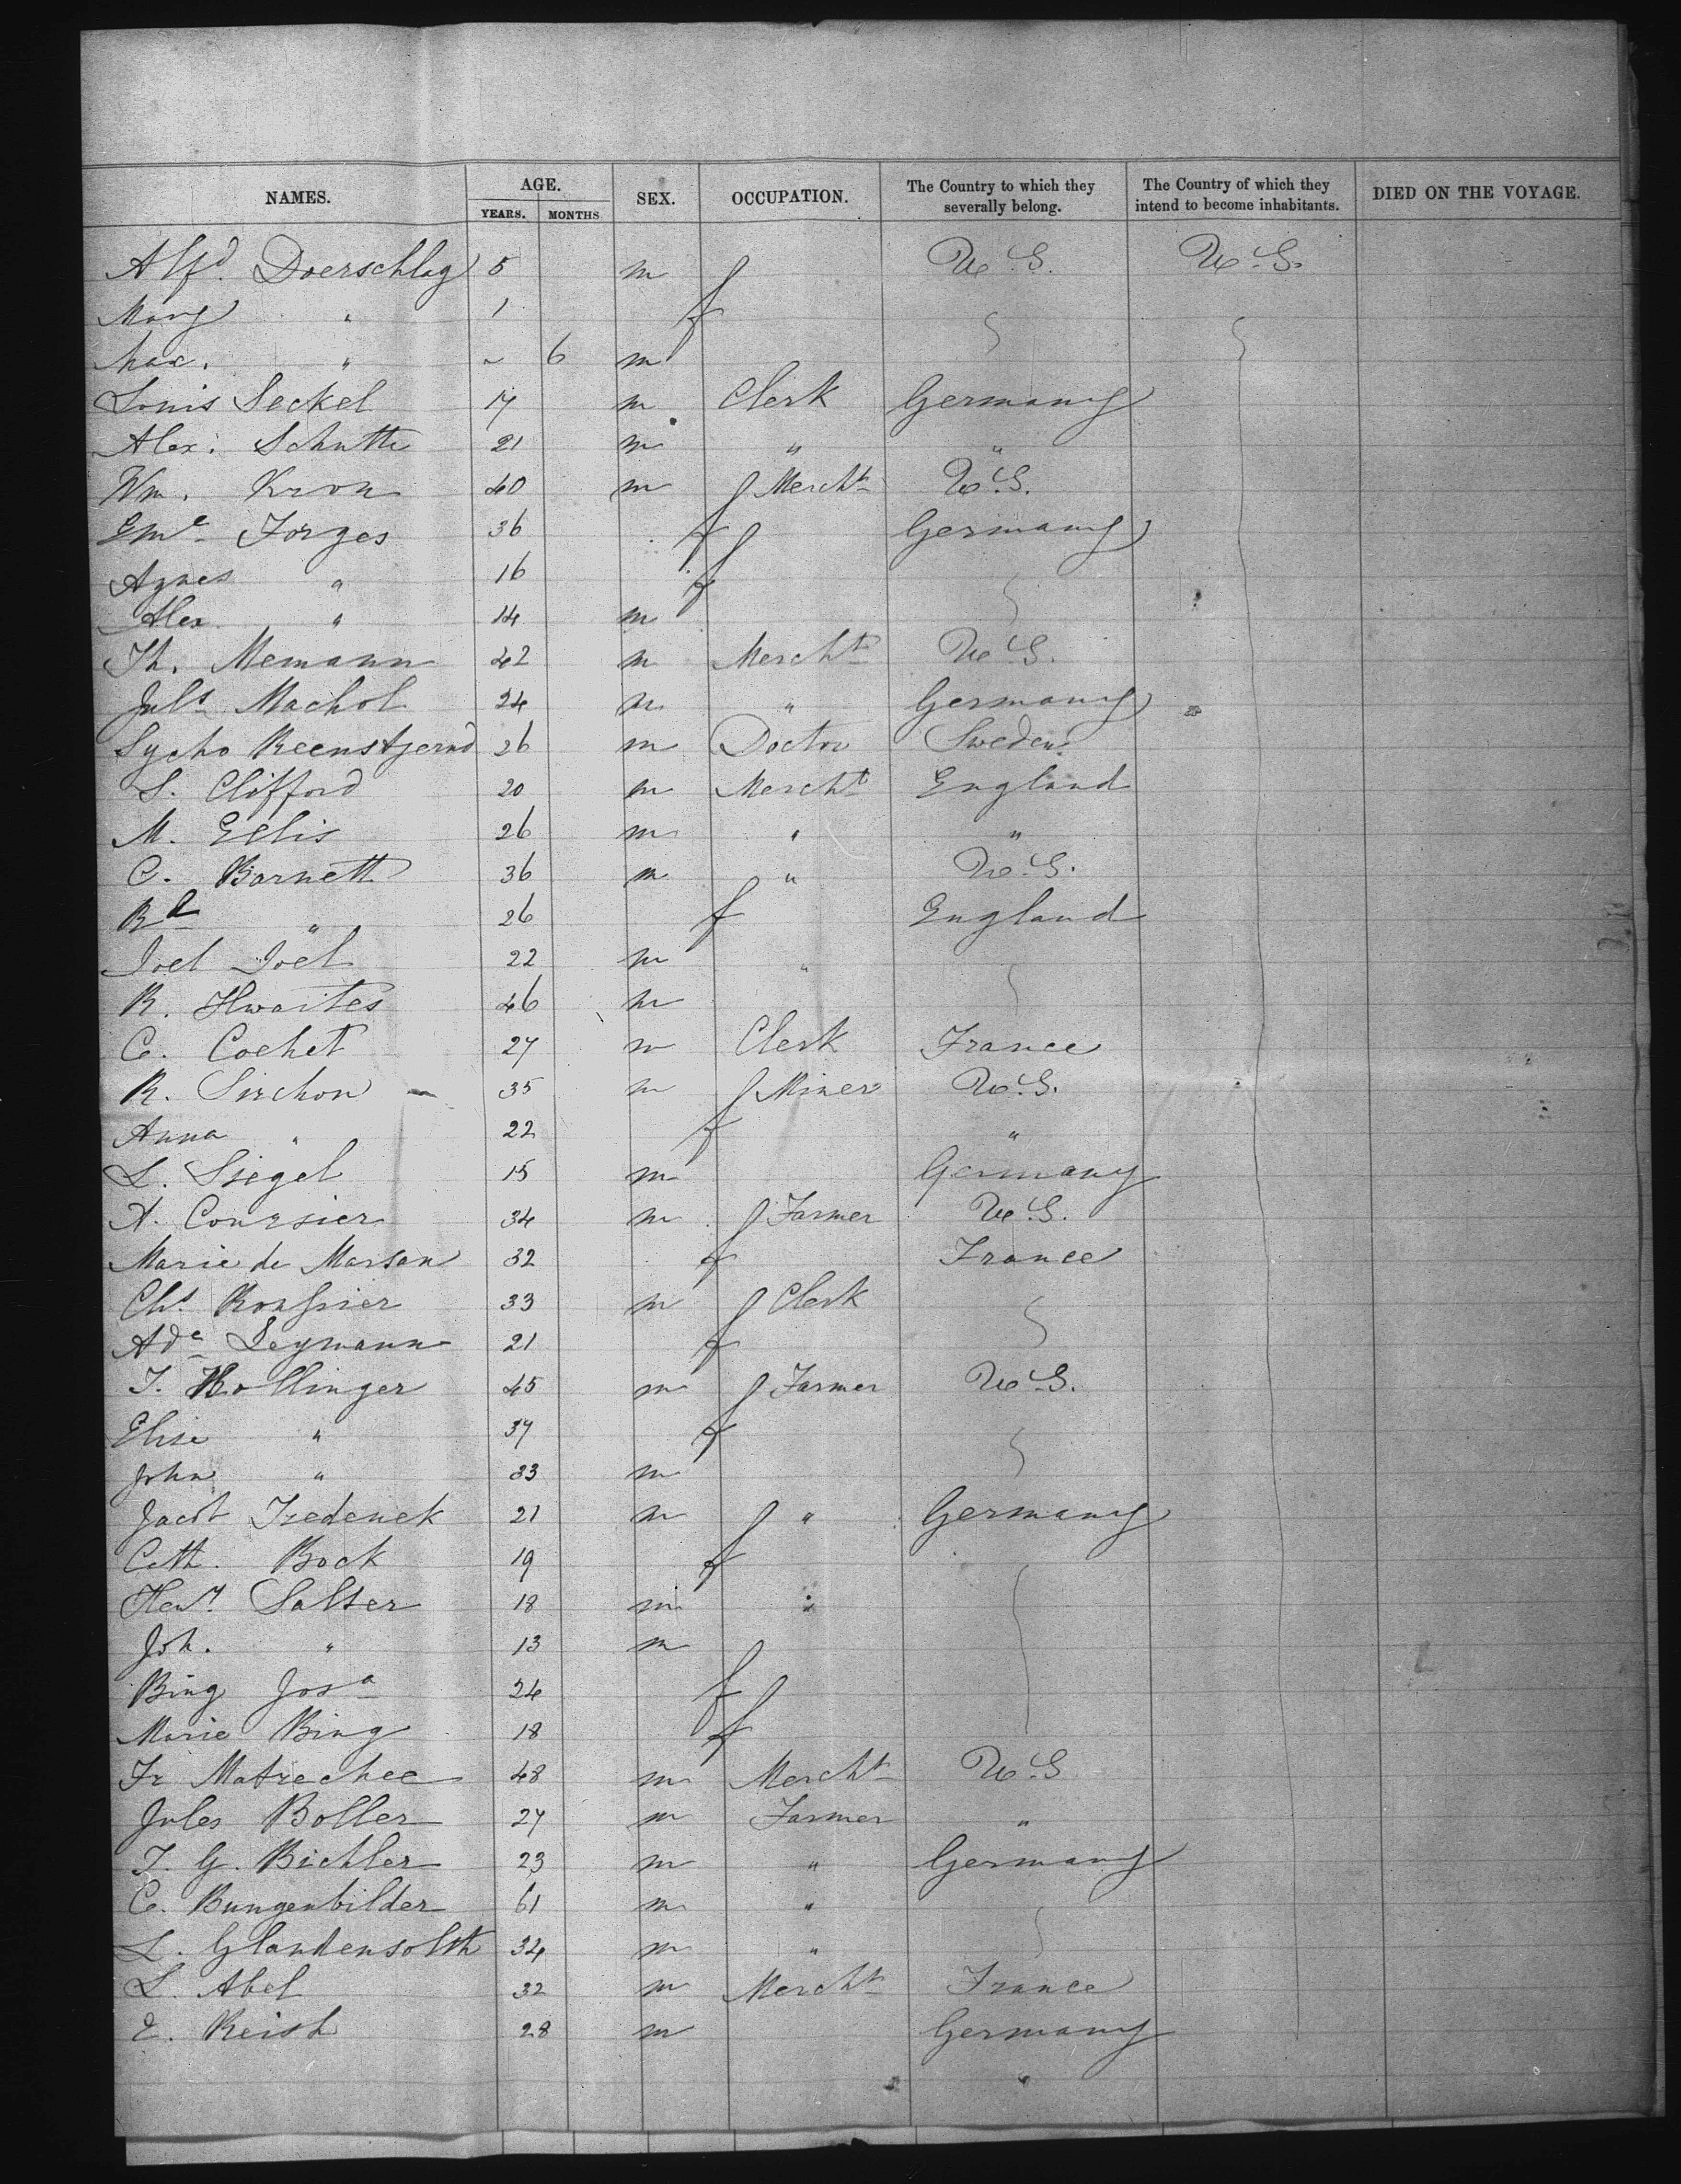 NAMES. AGE. YEARS. MONTHS SEX. OCCUPATION. The Country to which they severally belong. The Country of which they intend to become inhabitants. DIED ON THE VOYAGE.
Alfd. Doerschlag 5 m U.S. U.S.
Mary " 1 f
Max. " " 6 m
Louis Seckel 17 m Clerk Germany
Alex. Schutte 21 m " "
Wm. Kron 40 m Mercht U.S.
Eme Jorges 36 f Germany
Agnes " 16 f
Alex " 14 m
Th. Memann 42 m Mercht U.S.
Juls Machol 24 m " Germany
Sycho Reenstjernd 26 m Doctor Sweden
S. Clifford 20 m Mercht England
M. Ellis 26 m " "
C. Barnett 36 m " U.S.
" 26 f England
Joel Joel 22 m "
R. Thwaites 46 m
C. Cochet 27 m Clerk France
R. Sirchon 35 m Miner U.S.
Anna " 22 f "
L. Siegel 15 m Germany
A. Coursier 34 m Farmer U.S.
Marie de Marsan 32 f France
Chs. Roussier 33 m Clerk
Ade Leymann 21 f
J. Hollinger 45 m Farmer U.S.
Elise " 37 f
John " 33 m
Jacob Frederick 21 m " Germany
Cath. Bock 19 f
Heny. Salter 18 m "
Joh. " 13 m
Bing Josa 24 f
Marie Bing 18 f
Fr Matrechee 48 m Mercht U.S
Jules Boller 27 m Farmer "
J. G. Bichler 23 m " Germany
C. Bungenbilder 61 m "
L. Glandensolth 34 m "
L. Abel 32 m Mercht France
E. Reish 28 m Germany
"